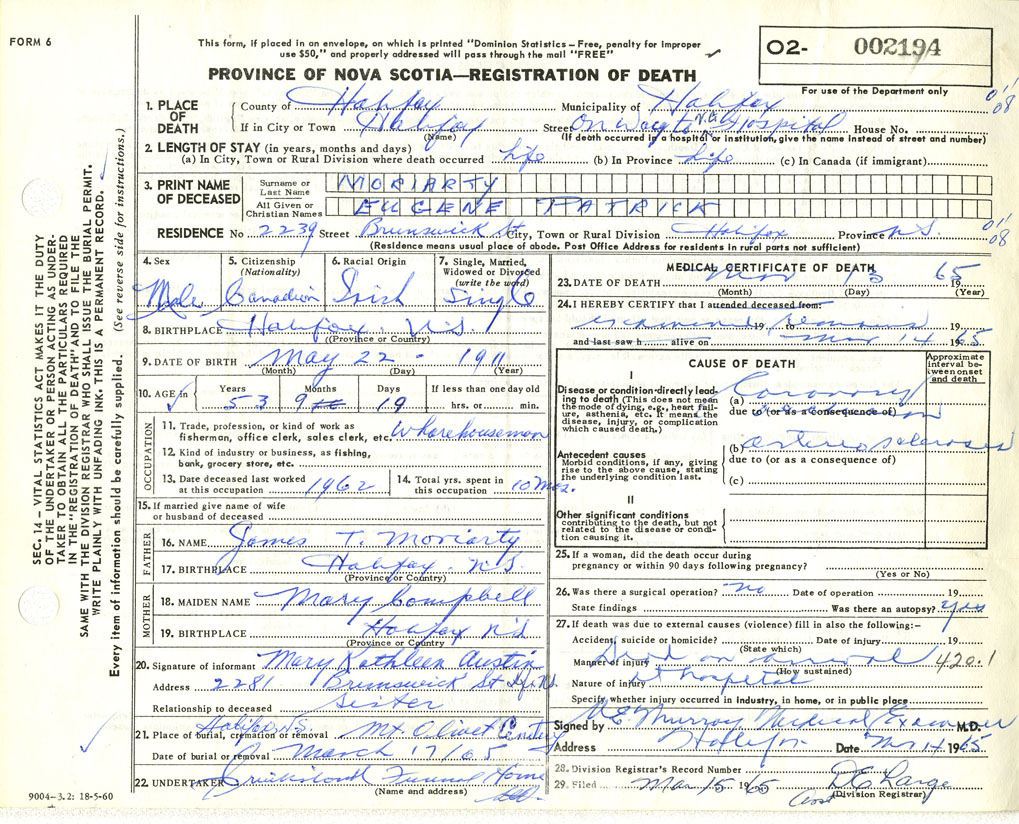 FORM 6
This form, if placed in an envelope, on which is printed "Dominion Statistics – Free, penalty for improper
use $50," and properly addressed will pass through the mail "FREE"
O2- 002194
For use of the Department only
PROVINCE OF NOVA SCOTIA—REGISTRATION OF DEATH
SEC. 14 – VITAL STATISTICS ACT MAKES IT THE DUTY
OF THE UNDERTAKER OR PERSON ACTING AS UNDER-
TAKER TO OBTAIN ALL THE PARTICULARS REQUIRED
IN THE "REGISTRATION OF DEATH" AND TO FILE THE
SAME WITH THE DIVISION REGISTRAR WHO SHALL ISSUE THE BURIAL PERMIT.
WRITE PLAINLY WITH UNFADING INK. THIS IS A PERMANENT RECORD.
Every item of information should be carefully supplied. (See reverse side for instructions.)
1. PLACE OF DEATH
County of Halifax Municipality of Halifax
If in City or Town Halifax Street On way to V.G. Hospital House No.
(Name) (If death occurred in a hospital or institution, give the name instead of street and number)
2. LENGTH OF STAY (in years, months and days)
(a) In City, Town or Rural Division where death occurred Life (b) In Province Life (c) In Canada (if immigrant)
3. PRINT NAME OF DECEASED
Surname or Last Name MORIARTY
All Given or Christian Names EUGENE PATRICK
RESIDENCE No 2239 Street Brunswick St City, Town or Rural Division Halifax Province N.S.
(Residence means usual place of abode. Post Office Address for residents in rural parts not sufficient)
08
08
4. Sex Male
5. Citizenship (Nationality) Canadian
6. Racial Origin Irish
7. Single, Married, Widowed or Divorced (write the word) Single
8. BIRTHPLACE Halifax N.S.
(Province or Country)
9. DATE OF BIRTH May 22 - 1911
(Month) (Day) (Year)
10. AGE in Years 53 Months 9 Days 19 If less than one day old hrs. or min.
OCCUPATION
11. Trade, profession, or kind of work as fisherman, office clerk, sales clerk, etc. Wharehouseman
12. Kind of industry or business, as fishing, bank, grocery store, etc.
13. Date deceased last worked at this occupation 1962
14. Total yrs. spent in this occupation 10 mos.
15. If married give name of wife or husband of deceased
FATHER
16. NAME James T. Moriarty
17. BIRTHPLACE Halifax N.S.
(Province or Country)
MOTHER
18. MAIDEN NAME Mary Campbell
19. BIRTHPLACE Halifax N.S.
(Province or Country)
20. Signature of informant Mary Kathleen Austin
Address 2281 Brunswick St Hfx N.S.
Relationship to deceased Sister
21. Place of burial, cremation or removal Halifax N.S. Mt. Olivet Cemetery
Date of burial or removal March 17/65
22. UNDERTAKER Funeral Home
(Name and address)
9004-3.2: 18-5-60
MEDICAL CERTIFICATE OF DEATH
23. DATE OF DEATH Mar 13 1965
(Month) (Day) (Year)
24. I HEREBY CERTIFY that I attended deceased from:
examined 19 to remains 19
and last saw h alive on Mar 14 1965
CAUSE OF DEATH
Approximate interval between onset and death
I
Disease or condition directly leading to death (This does not mean
the mode of dying, e.g., heart failure, asthenia, etc. It means the
disease, injury, or complication which caused death.)
(a) Coronary occlusion
due to (or as a consequence of)
(b) arterio sclerosis
due to (or as a consequence of)
(c)
Antecedent causes
Morbid conditions, if any, giving rise to the above cause, stating
the underlying condition last.
II
Other significant conditions
contributing to the death, but not related to the disease or condition causing it.
25. If a woman, did the death occur during
pregnancy or within 90 days following pregnancy?
(Yes or No)
26. Was there a surgical operation? no Date of operation 19
State findings Was there an autopsy? yes
27. If death was due to external causes (violence) fill in also the following:–
Accident, suicide or homicide? Date of injury 19
(State which)
Manner of injury Dead on arrival 420.1
(How sustained)
Nature of injury at hospital
Specify whether injury occurred in industry, in home, or in public place
Signed by Murray Medical Examiner M.D.
Address Halifax Date Mar 14 1965
28. Division Registrar's Record Number
29. Filed Mar 15 1965 D E Large
Asst (Division Registrar)